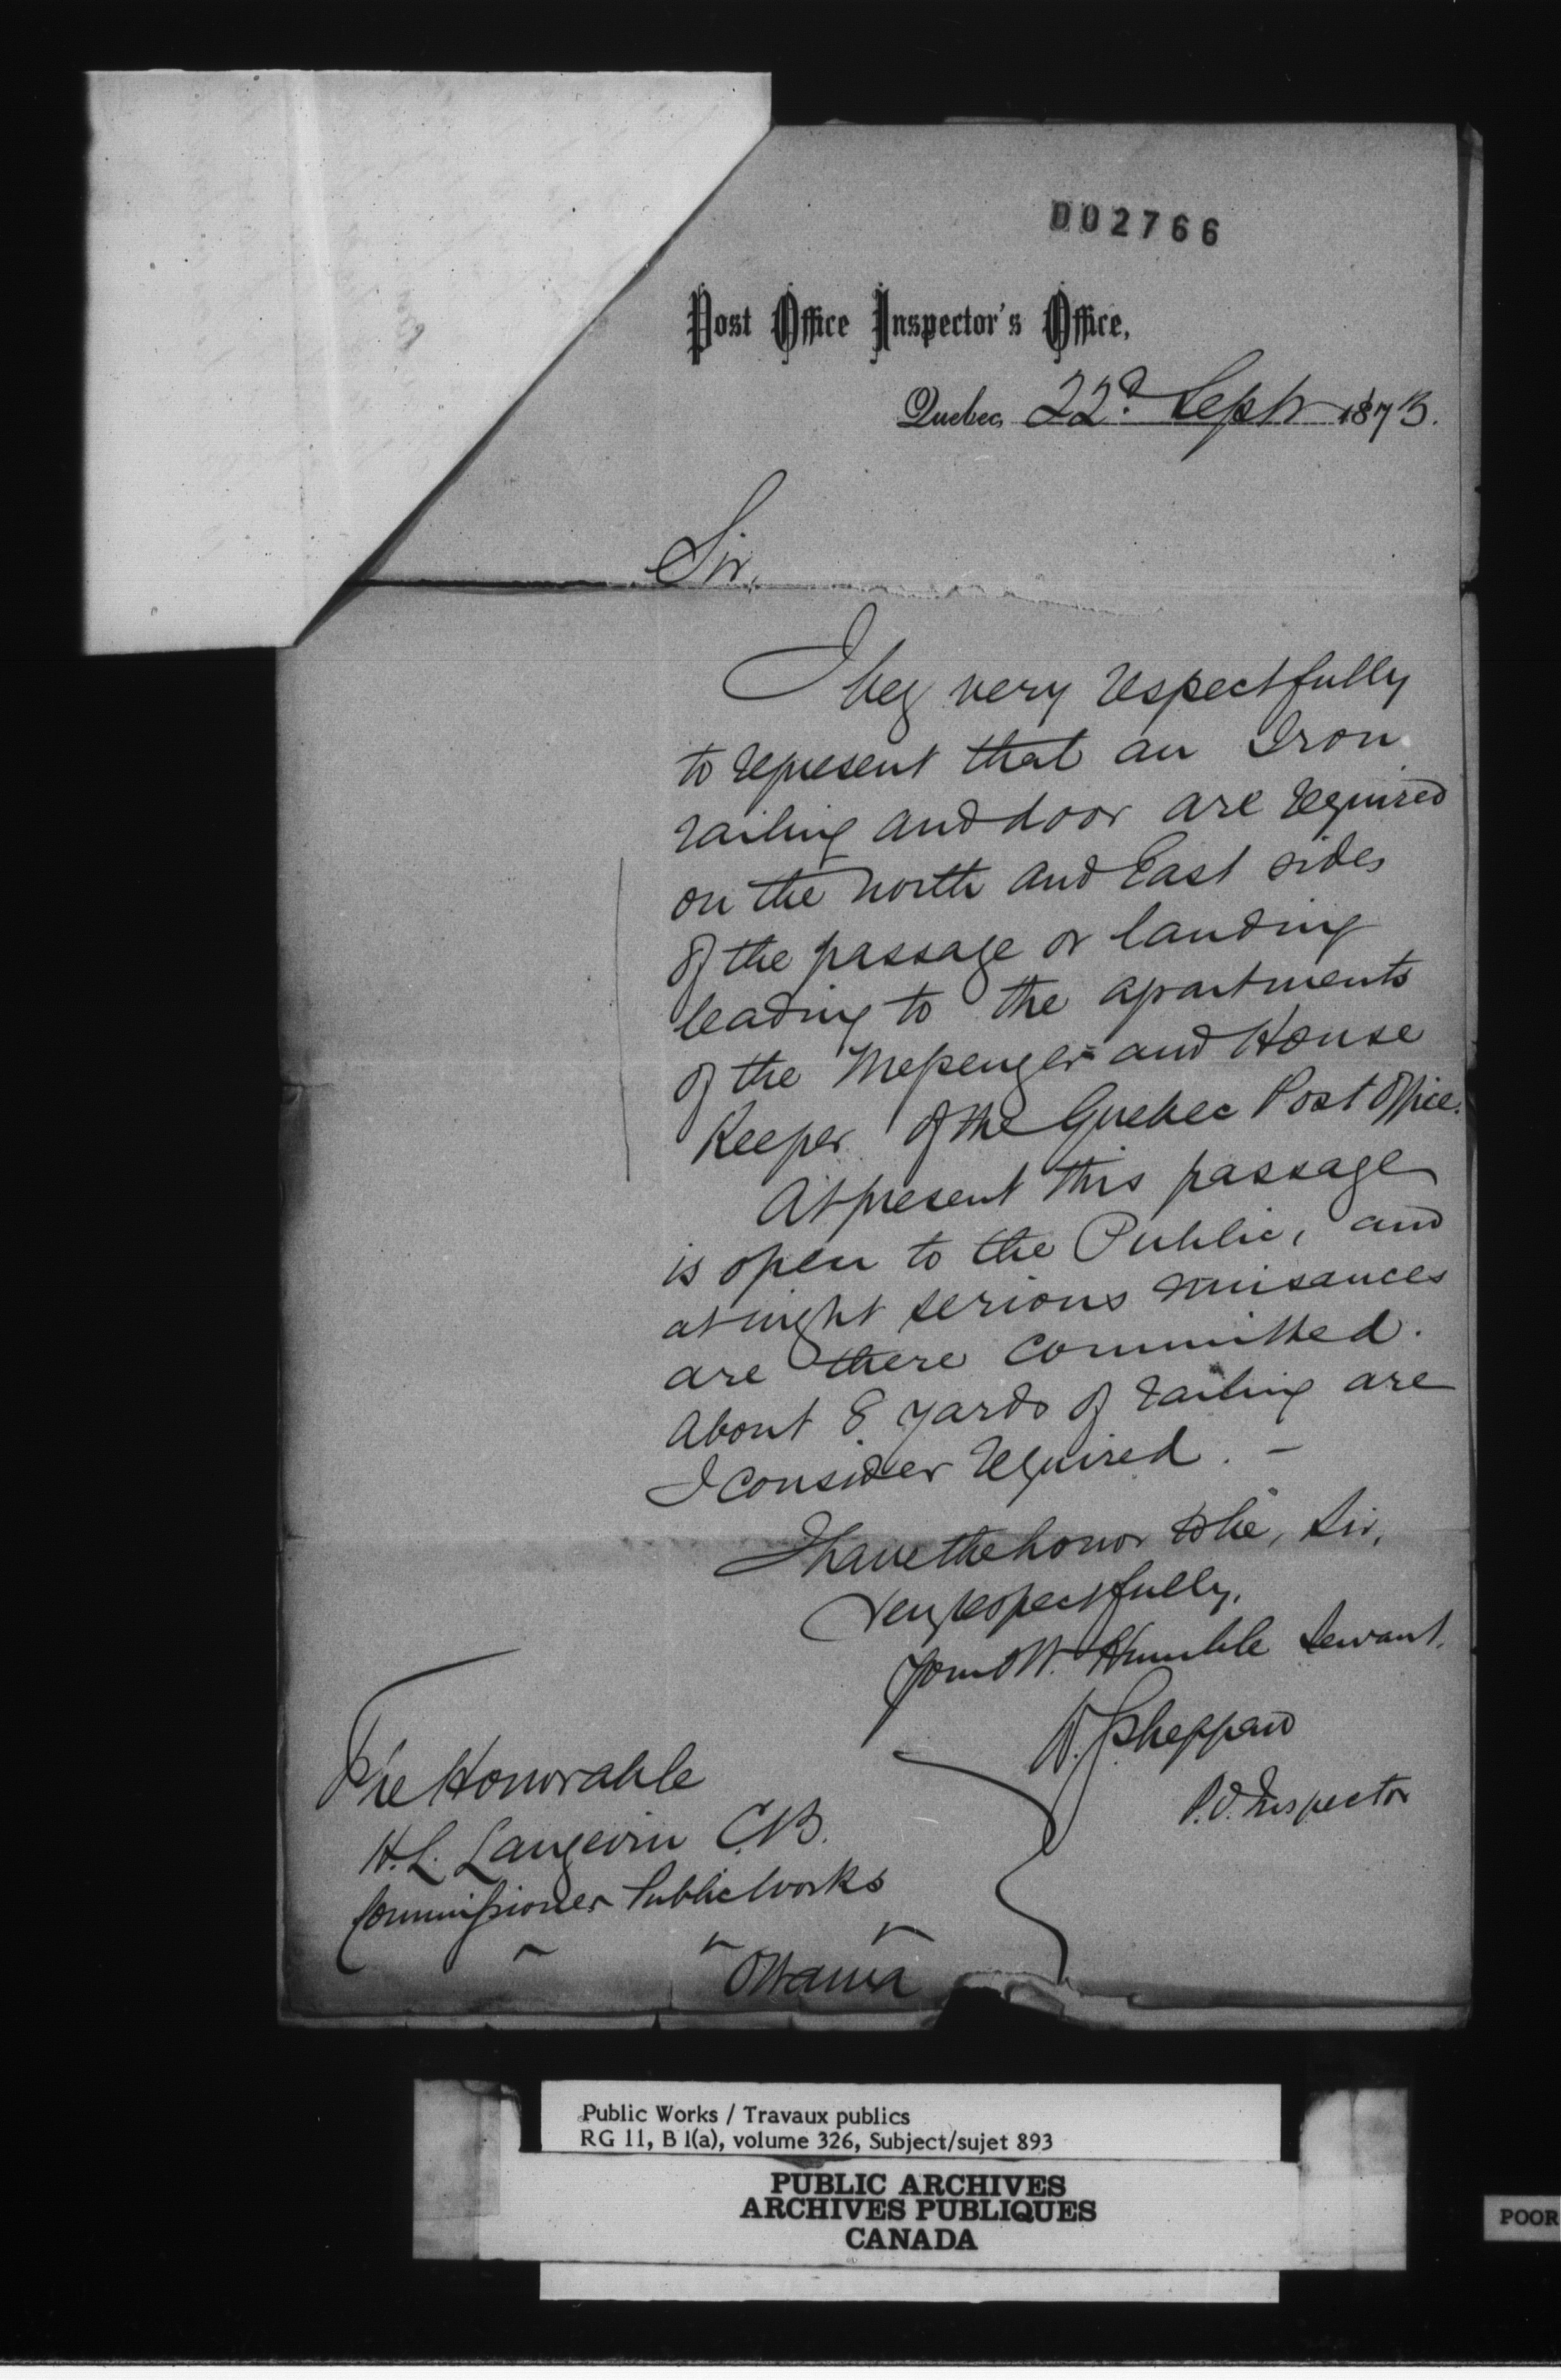 002766
Post Office Inspector's Office,
Quebec, 22d. Septr 1873.
Sir,
I beg very respectfully
to represent that an Iron
railing and door are required
on the north and East sides
of the passage or landing
leading to the apartments
of the Messenger and House
Keeper of the Quebec Post Office.
At present this passage
is open to the Public, and
at night serious nuisances
are there committed.
About 8 yards of railing are
I consider required. -
I have the honor to be, Sir,
Very respectfully,
Your Ob. Humble Servant.
W. Sheppard
P.O. Inspector
The Honorable
H.L. Langevin C.B.
Commissioner Public Works
Ottawa
Public Works / Travaux publics
RG 11, B 1(a), volume 326, Subject/sujet 893
PUBLIC ARCHIVES
ARCHIVES PUBLIQUES
CANADA
POOR